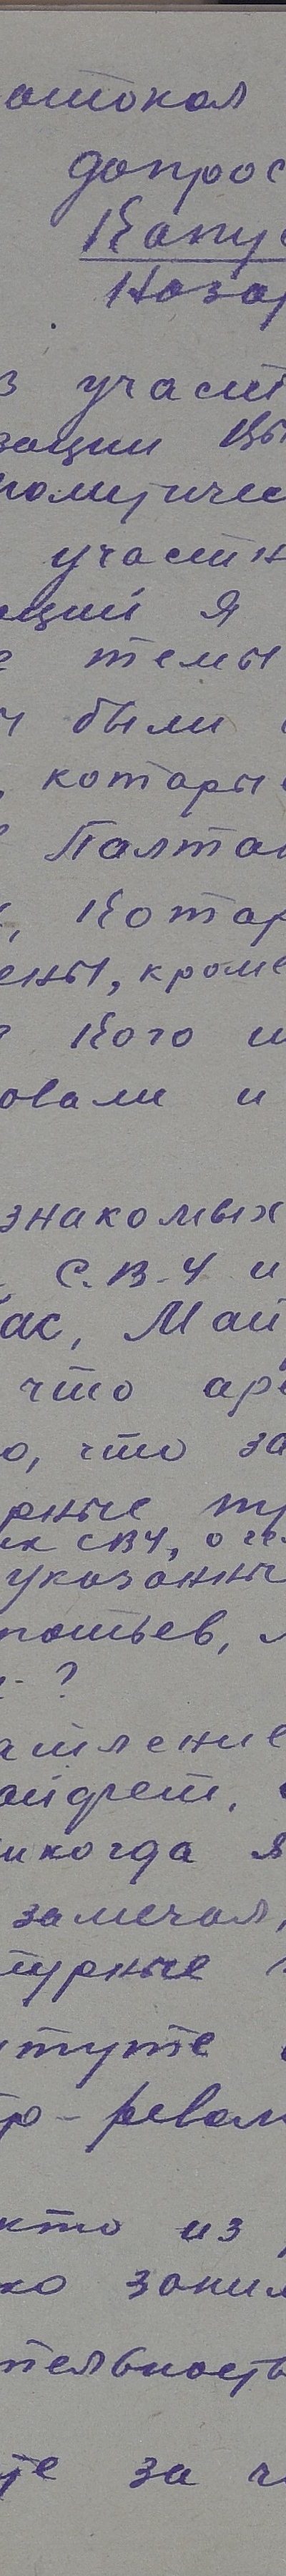 отокол
допрос
Капус
Назар
з участ
зации Вы
политичес
участн
аций я
е темы
и были
, которые
Палта
, Котар
ены, кроме
Кого и
овали и
знакомых
С.В.Ч и
ас, Май
что аре
о, что за
рные тр
их СВЧ, о че
указанны
потьев,
?
атление
айдрет,
икогда я
замечал,
турные
итуте
тр-револ
кто из
ко заним
тельность
те за ч